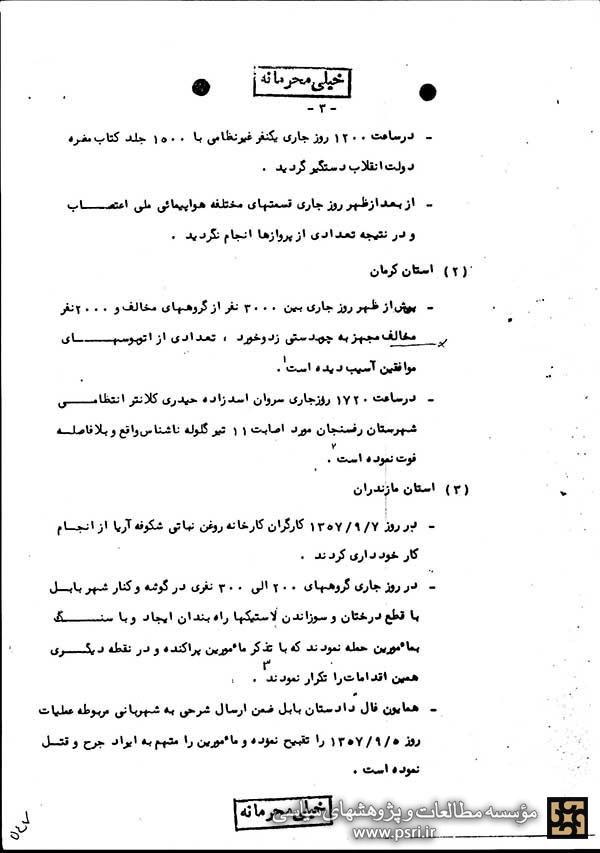 خیلی محرمانه
- ۳ -
- درساعت ۱۲۰۰ روز جاری یکنفر غیرنظامی با ۱۵۰۰ جلد کتاب مضره
دولت انقلاب دستگیر گردید .
- از بعد از ظهر روز جاری قسمتهای مختلفه هواپیمائی ملی اعتصاب
و در نتیجه تعدادی از پروازها انجام نگردید .
(۲) استان کرمان
- پیش از ظهر روز جاری بین ۳۰۰۰ نفر از گروههای مخالف و ۲۰۰۰ نفر
مخالف مجهز به چوبدستی زدوخورد ، تعدادی از اتوبوسهای
موافقین آسیب دیده است۱.
- درساعت ۱۷۲۰ روزجاری سروان اسدزاده حیدری کلانتر انتظامی
شهرستان رفسنجان مورد اصابت ۱۱ تیر گلوله ناشناس واقع و بلافاصله
فوت نموده است۲.
(۳) استان مازندران
- در روز ۱۳۵۷/۹/۷ کارگران کارخانه روغن نباتی شکوفه آریا از انجام
کار خودداری کردند .
- در روز جاری گروههای ۲۰۰ الی ۳۰۰ نفری در گوشه و کنار شهر بابل
با قطع درختان و سوزاندن لاستیکها راه بندان ایجاد و با سنگ
بمأمورین حمله نمودند که با تذکر مأمورین پراکنده و در نقطه دیگری
همین اقدامات را تکرار نمودند۳ .
- همایون فال دادستان بابل ضمن ارسال شرحی به شهربانی مربوطه عملیات
روز ۱۳۵۷/۹/۵ را تقبیح نموده و مأمورین را متهم به ایراد جرح و قتل
نموده است .
خیلی محرمانه
مؤسسه مطالعات و پژوهشهای سیاسی
www.psri.ir